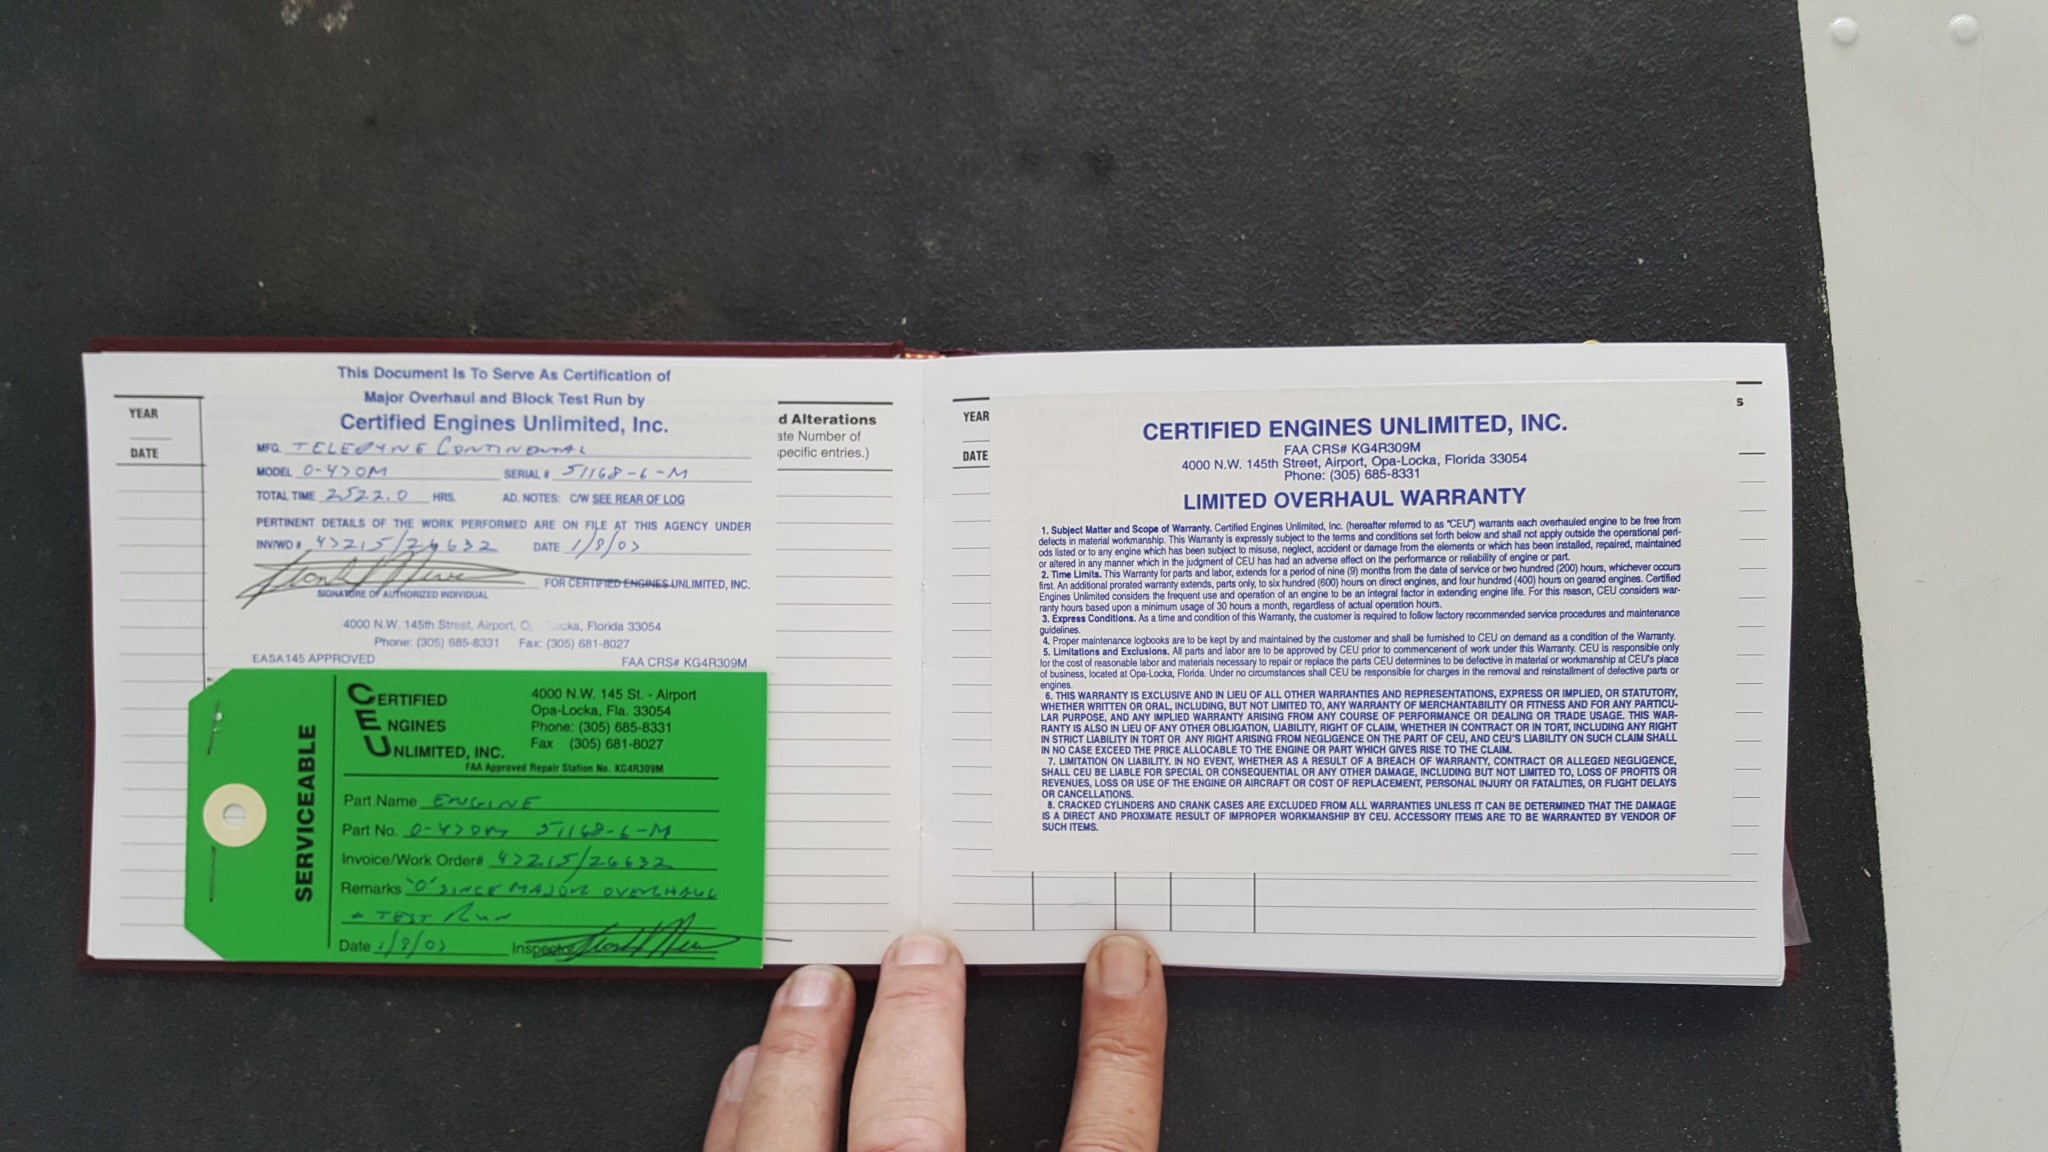 YEAR
DATE
This Document Is To Serve As Certification of
Major Overhaul and Block Test Run by
Certified Engines Unlimited, Inc.
MFG. TELEDYNE CONTINENTAL
MODEL O-470M SERIAL # 51168-6-M
TOTAL TIME 2522.0 HRS. AD. NOTES: C/W SEE REAR OF LOG
PERTINENT DETAILS OF THE WORK PERFORMED ARE ON FILE AT THIS AGENCY UNDER
INV/WO # 47215/26632 DATE 1/8/07
FOR CERTIFIED ENGINES UNLIMITED, INC.
SIGNATURE OF AUTHORIZED INDIVIDUAL
4000 N.W. 145th Street, Airport, O ocka, Florida 33054
Phone: (305) 685-8331 Fax: (305) 681-8027
EASA145 APPROVED FAA CRS# KG4R309M
d Alterations
ate Number of
pecific entries.)
SERVICEABLE
CERTIFIED
ENGINES
UNLIMITED, INC.
4000 N.W. 145 St. - Airport
Opa-Locka, Fla. 33054
Phone: (305) 685-8331
Fax (305) 681-8027
FAA Approved Repair Station No. KG4R309M
Part Name ENGINE
Part No. O-470M 51168-6-M
Invoice/Work Order# 47215/26632
Remarks "0" SINCE MAJOR OVERHAUL
+ TEST RUN
Date 1/8/07 Inspector
YEAR
DATE
s
CERTIFIED ENGINES UNLIMITED, INC.
FAA CRS# KG4R309M
4000 N.W. 145th Street, Airport, Opa-Locka, Florida 33054
Phone: (305) 685-8331
LIMITED OVERHAUL WARRANTY
1. Subject Matter and Scope of Warranty. Certified Engines Unlimited, Inc. (hereafter referred to as "CEU") warrants each overhauled engine to be free from
defects in material workmanship. This Warranty is expressly subject to the terms and conditions set forth below and shall not apply outside the operational peri-
ods listed or to any engine which has been subject to misuse, neglect, accident or damage from the elements or which has been installed, repaired, maintained
or altered in any manner which in the judgment of CEU has had an adverse effect on the performance or reliability of engine or part.
2. Time Limits. This Warranty for parts and labor, extends for a period of nine (9) months from the date of service or two hundred (200) hours, whichever occurs
first. An additional prorated warranty extends, parts only, to six hundred (600) hours on direct engines, and four hundred (400) hours on geared engines. Certified
Engines Unlimited considers the frequent use and operation of an engine to be an integral factor in extending engine life. For this reason, CEU considers war-
ranty hours based upon a minimum usage of 30 hours a month, regardless of actual operation hours.
3. Express Conditions. As a time and condition of this Warranty, the customer is required to follow factory recommended service procedures and maintenance
guidelines.
4. Proper maintenance logbooks are to be kept by and maintained by the customer and shall be furnished to CEU on demand as a condition of the Warranty.
5. Limitations and Exclusions. All parts and labor are to be approved by CEU prior to commencement of work under this Warranty. CEU is responsible only
for the cost of reasonable labor and materials necessary to repair or replace the parts CEU determines to be defective in material or workmanship at CEU's place
of business, located at Opa-Locka, Florida. Under no circumstances shall CEU be responsible for charges in the removal and reinstallment of defective parts or
engines.
6. THIS WARRANTY IS EXCLUSIVE AND IN LIEU OF ALL OTHER WARRANTIES AND REPRESENTATIONS, EXPRESS OR IMPLIED, OR STATUTORY,
WHETHER WRITTEN OR ORAL, INCLUDING, BUT NOT LIMITED TO, ANY WARRANTY OF MERCHANTABILITY OR FITNESS AND FOR ANY PARTICU-
LAR PURPOSE, AND ANY IMPLIED WARRANTY ARISING FROM ANY COURSE OF PERFORMANCE OR DEALING OR TRADE USAGE. THIS WAR-
RANTY IS ALSO IN LIEU OF ANY OTHER OBLIGATION, LIABILITY, RIGHT OF CLAIM, WHETHER IN CONTRACT OR IN TORT, INCLUDING ANY RIGHT
IN STRICT LIABILITY IN TORT OR ANY RIGHT ARISING FROM NEGLIGENCE ON THE PART OF CEU, AND CEU'S LIABILITY ON SUCH CLAIM SHALL
IN NO CASE EXCEED THE PRICE ALLOCABLE TO THE ENGINE OR PART WHICH GIVES RISE TO THE CLAIM.
7. LIMITATION ON LIABILITY. IN NO EVENT, WHETHER AS A RESULT OF A BREACH OF WARRANTY, CONTRACT OR ALLEGED NEGLIGENCE,
SHALL CEU BE LIABLE FOR SPECIAL OR CONSEQUENTIAL OR ANY OTHER DAMAGE, INCLUDING BUT NOT LIMITED TO, LOSS OF PROFITS OR
REVENUES, LOSS OR USE OF THE ENGINE OR AIRCRAFT OR COST OF REPLACEMENT, PERSONAL INJURY OR FATALITIES, OR FLIGHT DELAYS
OR CANCELLATIONS.
8. CRACKED CYLINDERS AND CRANK CASES ARE EXCLUDED FROM ALL WARRANTIES UNLESS IT CAN BE DETERMINED THAT THE DAMAGE
IS A DIRECT AND PROXIMATE RESULT OF IMPROPER WORKMANSHIP BY CEU. ACCESSORY ITEMS ARE TO BE WARRANTED BY VENDOR OF
SUCH ITEMS.